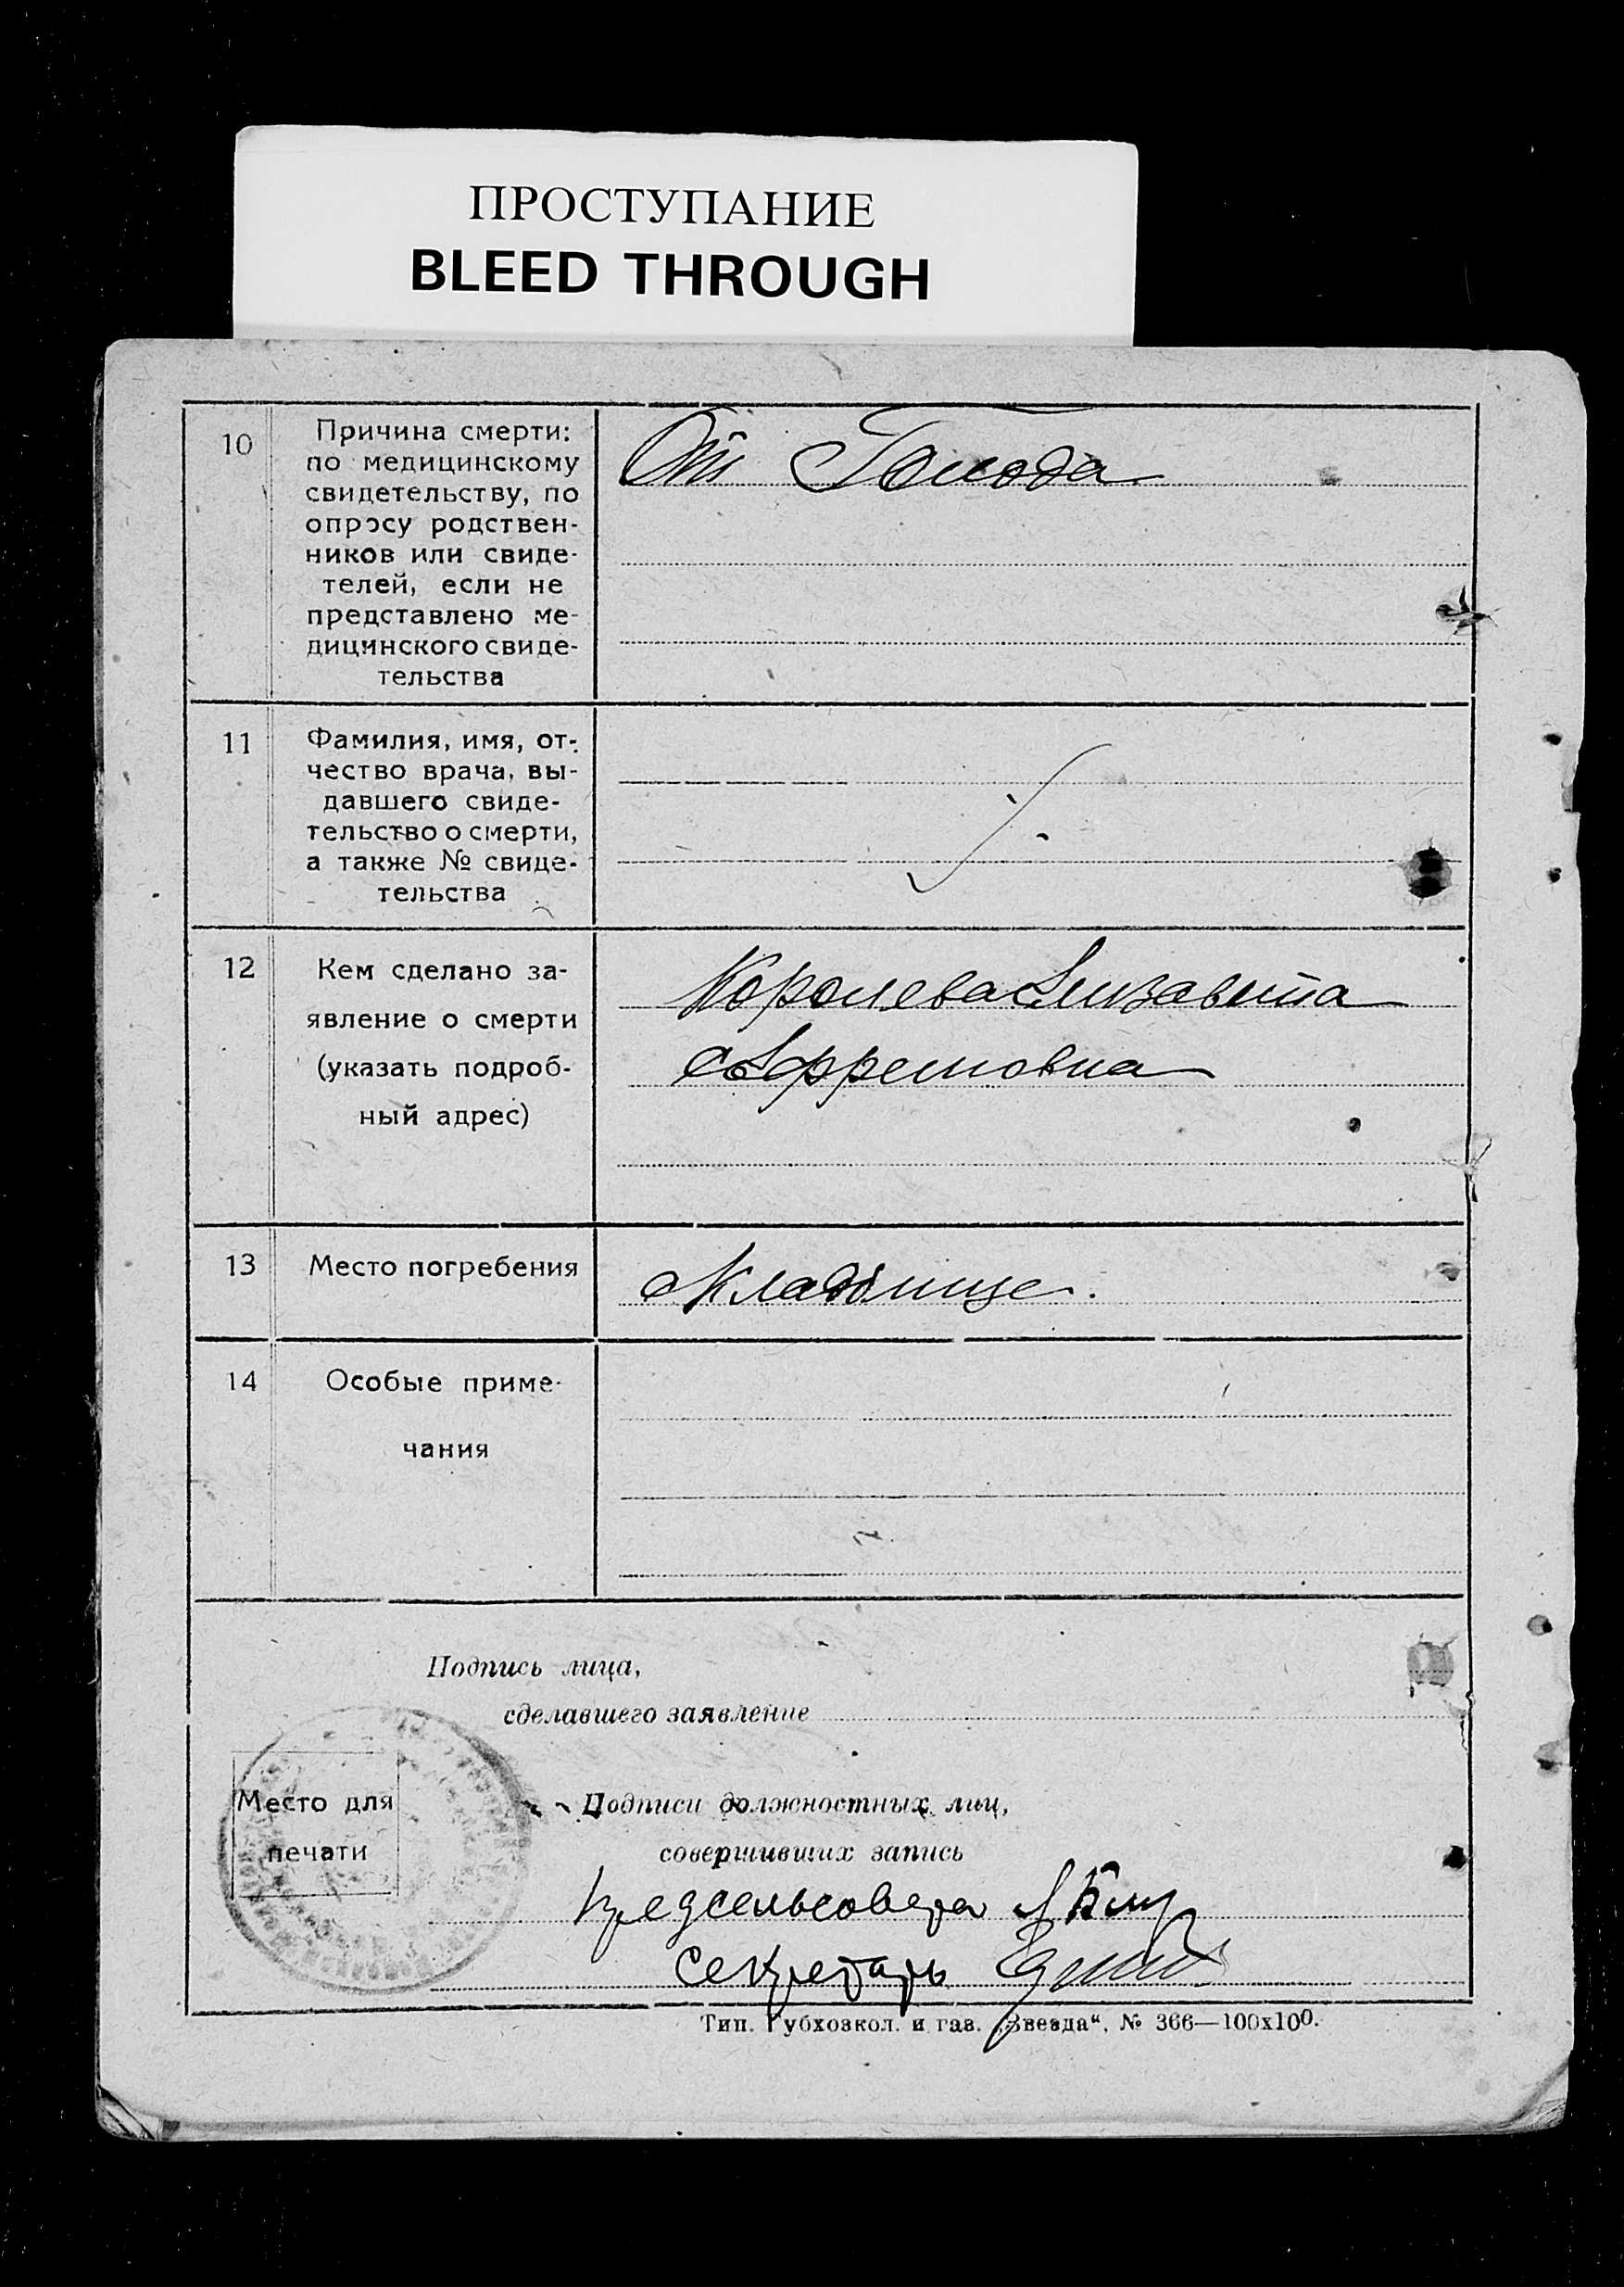 ПРОСТУПАНИЕ
BLEED THROUGH
10
Причина смерти:
по медицинскому
свидетельству, по
опросу родствен-
ников или свиде-
телей, если не
представлено ме-
дицинского свиде-
тельства
От Голода
11
Фамилия, имя, от-
чество врача, вы-
давшего свиде-
тельство о смерти,
а также № свиде-
тельства
12
Кем сделано за-
явление о смерти
(указать подроб-
ный адрес)
Королева Елизавета
Ефремовна
13
Место погребения
Кладбище.
14
Особые приме-
чания
Подпись лица,
сделавшего заявление
Место для
печати
Подписи должностных лиц,
совершивших запись
Предсельсовета
Секретарь
Тип. Губхозкол. и газ. „Звезда“, № 366—100х100.